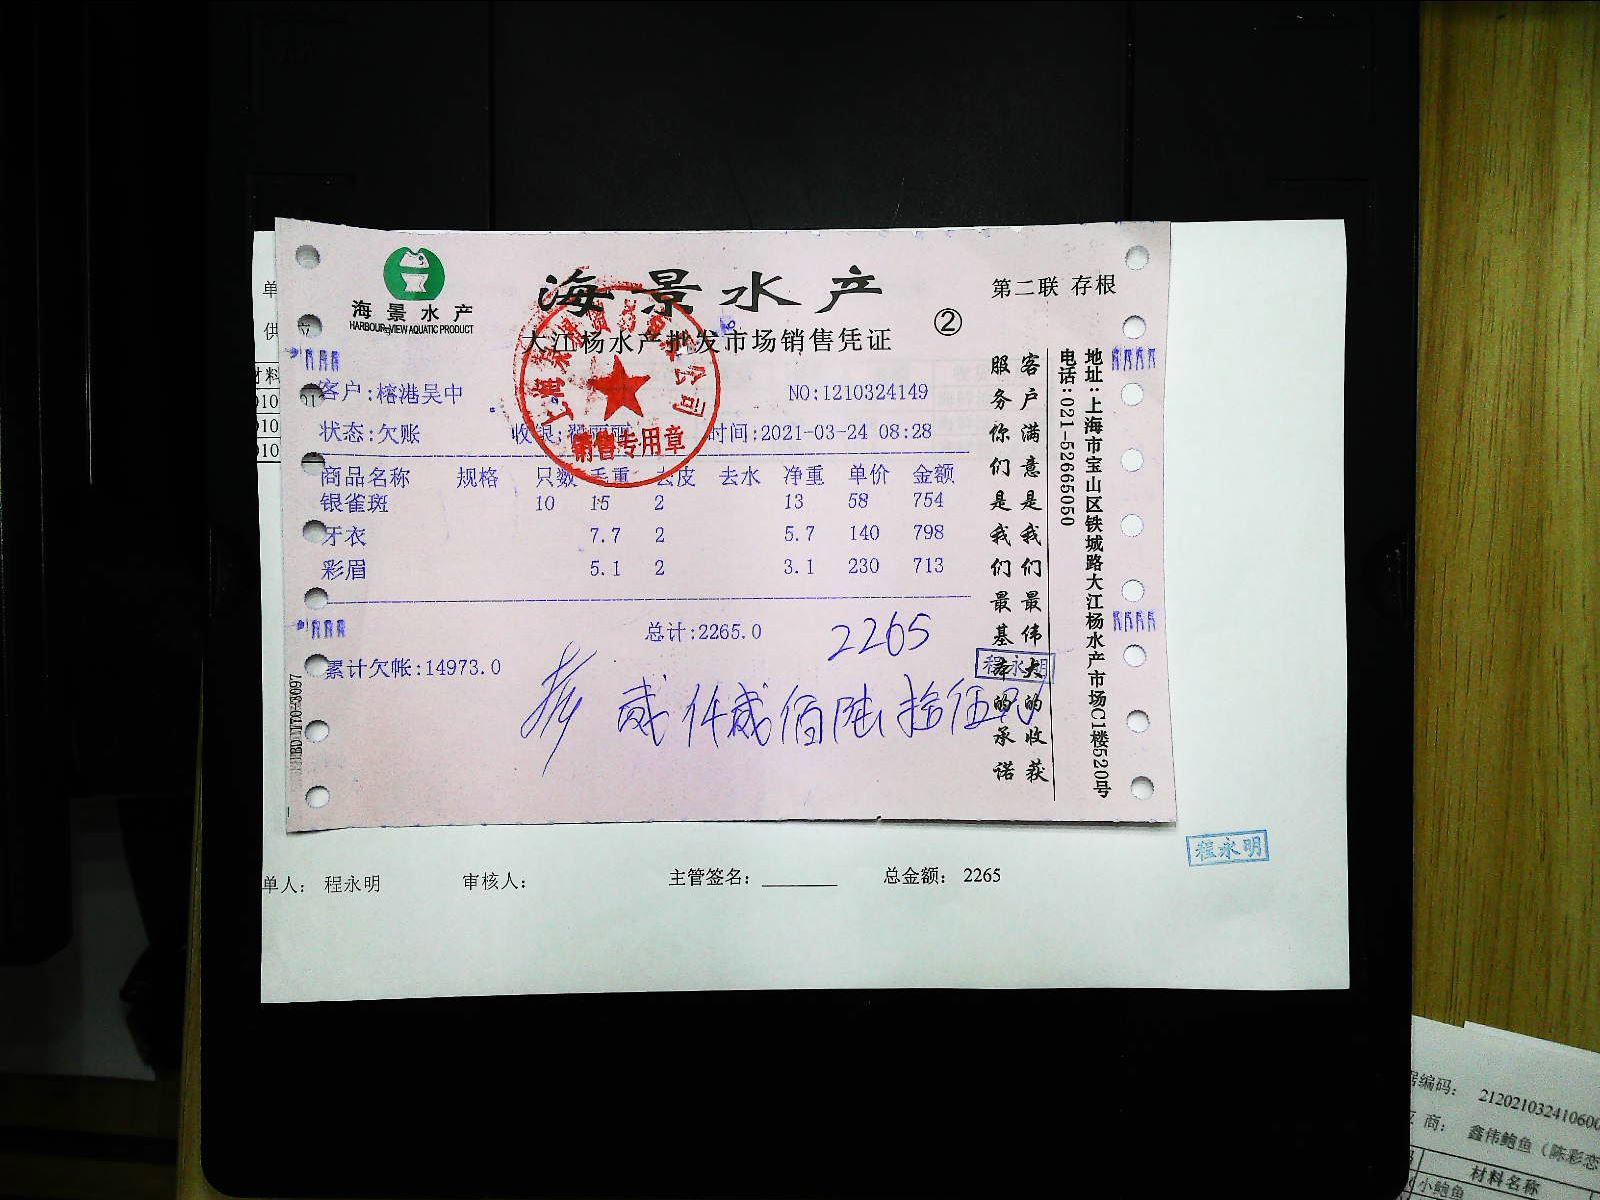 海景水产
HARBOUR VIEW AQUATIC PRODUCT
海景水产
大江杨水产批发市场销售凭证
②
第二联 存根
客户:榕港吴中
NO:1210324149
状态:欠账
收银:翟丽丽
时间:2021-03-24 08:28
商品名称 规格 只数 毛重 去皮 去水 净重 单价 金额
银雀斑 10 15 2 13 58 754
牙衣 7.7 2 5.7 140 798
彩眉 5.1 2 3.1 230 713
总计:2265.0
2265
累计欠帐:14973.0
贰仟贰佰陆拾伍
客户满意是我们最伟大的收获
服务你们是我们最基本的承诺
地址:上海市宝山区铁城路大江杨水产市场C1楼520号
电话:021-52665050
销售专用章
程永明
程永明
单
供应
材料
010
010
010
单人: 程永明
审核人:
主管签名:
总金额: 2265
据编码: 2120210324106000
应 商: 鑫伟鲍鱼(陈彩恋
材料名称
小鲍鱼